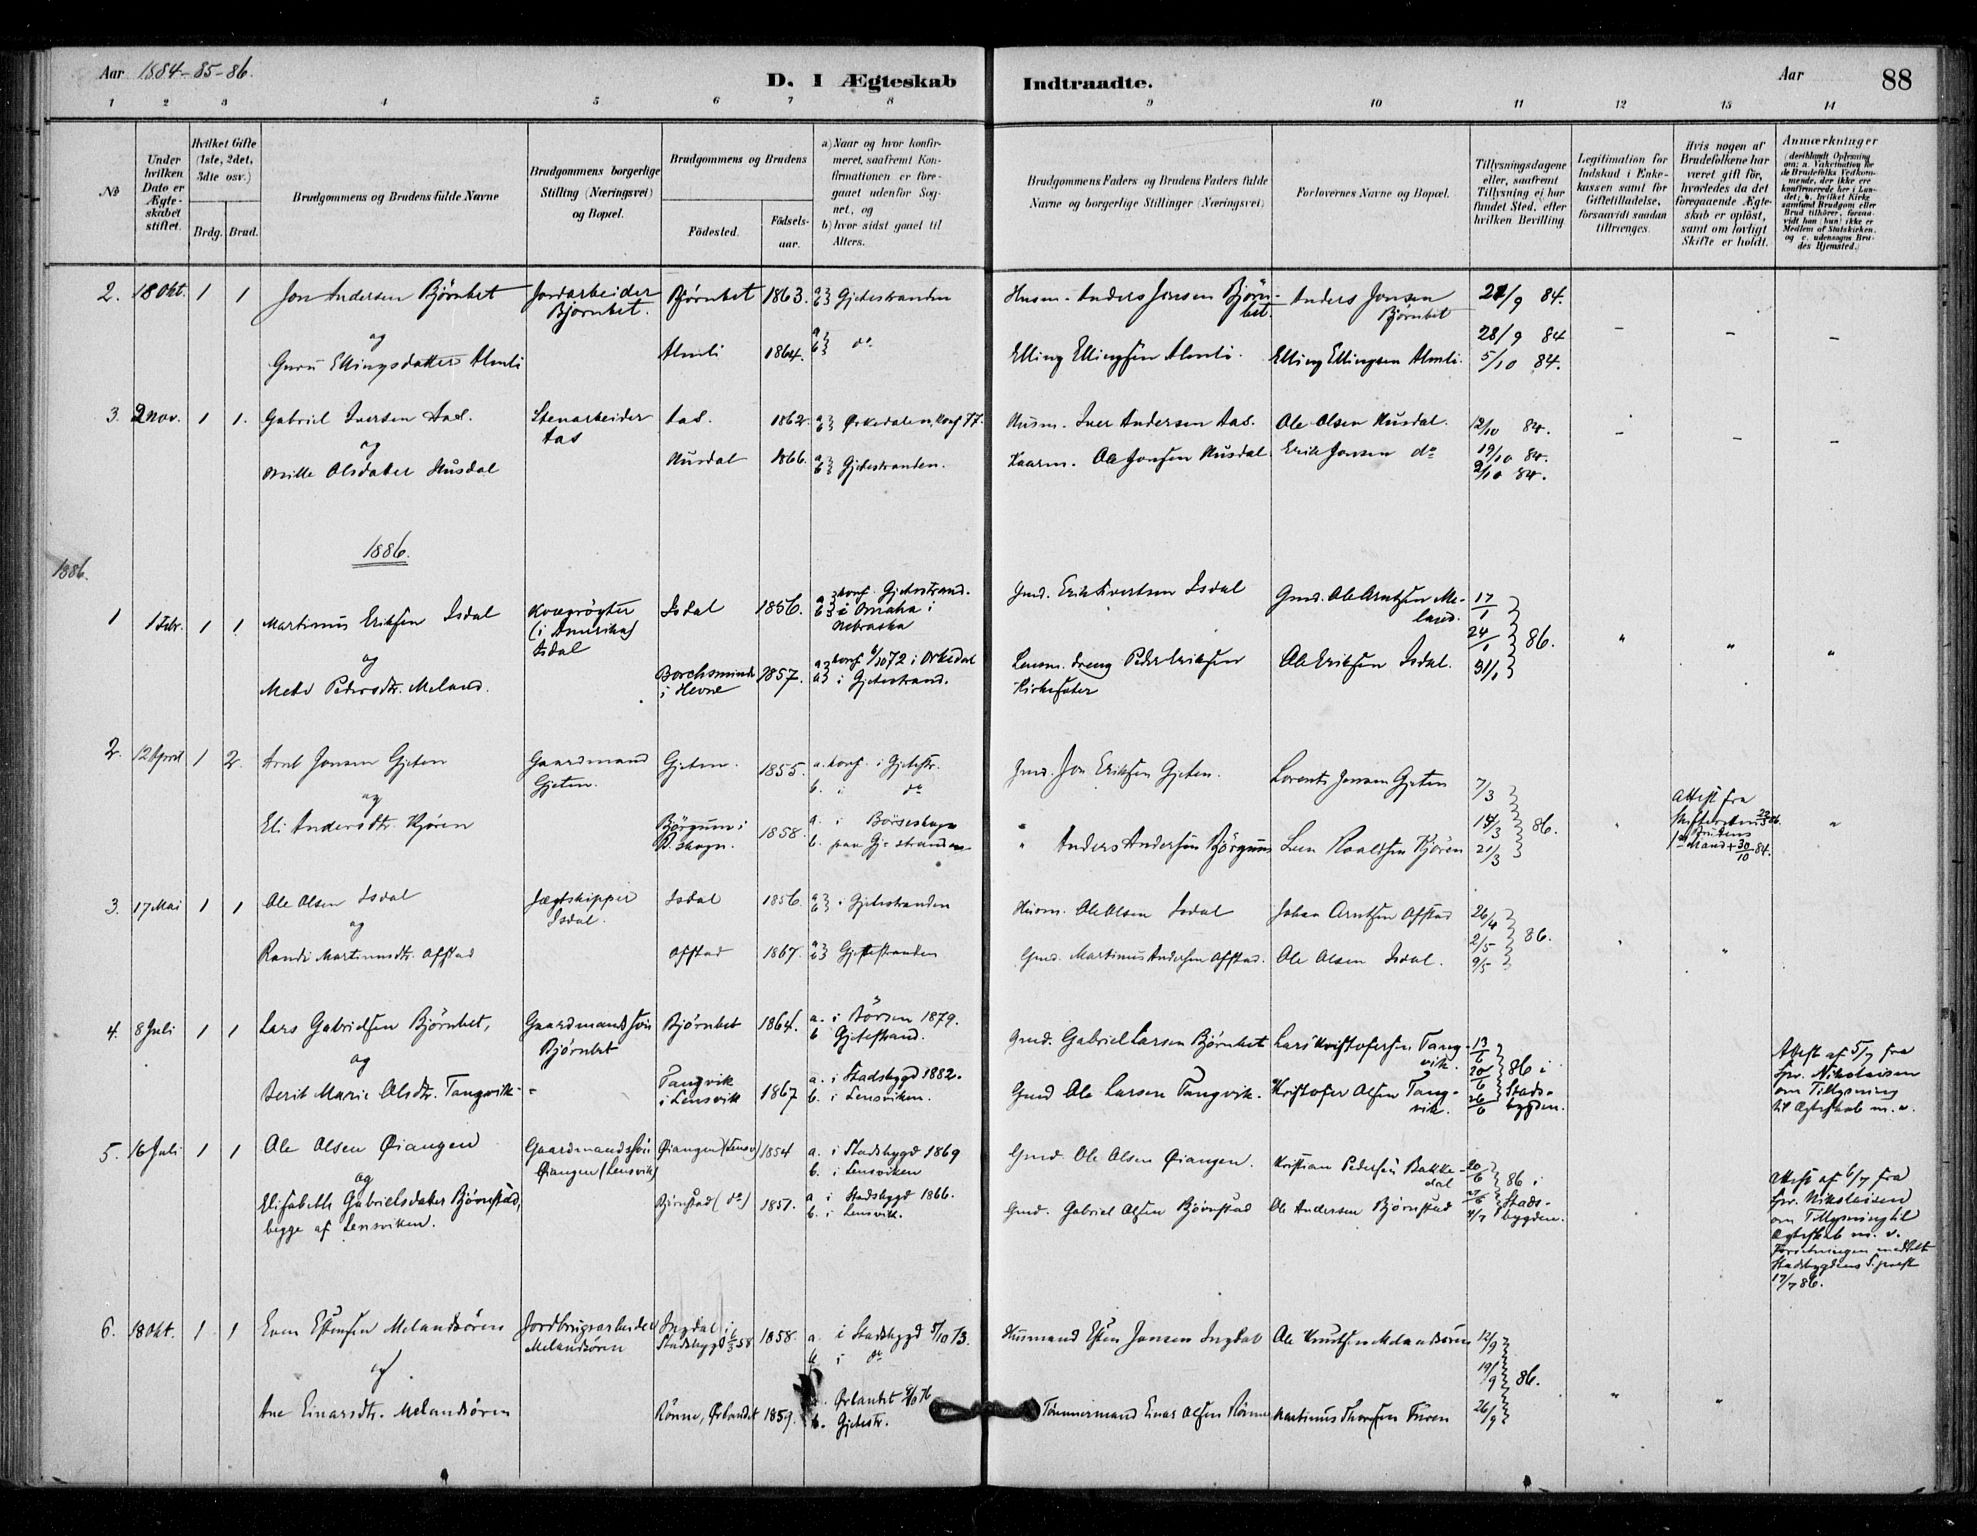 Aar 1884-85-86.
D. I Ægteskab Indtraadte.
Aar
88
1 2 3 4 5 6 7 8 9 10 11 12 13 14
No
Under hvilken Dato er Ægteskabet stiftet.
Hvilket Gifte (1ste, 2det, 3die osv.)
Brdg. Brud.
Brudgommens og Brudens fulde Navne
Brudgommens borgerlige Stilling (Næringsvei) og Bopæl.
Brudgommens og Brudens
Fødested.
Fødselsaar.
a) Naar og hvor konfirmeret, saafremt Konfirmationen er foregaaet udenfor Sognet, og
b) hvor sidst gaaet til Alters.
Brudgommens Faders og Brudens Faders fulde Navne og borgerlige Stillinger (Næringsvei)
Forlovernes Navne og Bopæl.
Tillysningsdagene eller, saafremt Tillysning ei har fundet Sted, efter hvilken Bevilling
Legitimation for Indskud i Enkekassen samt for Giftetilladelse, forsaavidt saadan tiltrænges.
Hvis nogen af Brudefolkene har været gift før, hvorledes da det foregaaende Ægteskab er opløst, samt om lovligt Skifte er holdt.
Anmærkninger
2. 18 Okt. 1 1 Jon Andersen Bjørnbet Jordarbeider Bjørnbet 1863. a b Gjetestranden Husm. Anders Jonsen Bjørn- Anders Jonsen 21/9 84.
Bjørnbet. bet. Bjørnbet
og 28/9 84
Guru Ellingsdatter Almli Almli 1864. a b do Elling Ellingsen Almli. Elling Ellingsen Almli. 5/10 84.
3. 2 Nov. 1 1. Gabriel Iversen Aas. Stenarbeider Aas. 1862. a b Ørkedalen, konf 77. Husm. Iver Andersen Aas. Ole Olsen Husdal. 12/10 84.
Aas
og 19/10 84.
Mille Olsdatter Husdal Husdal 1866. a b Gjetestranden. Kaarm. Ole Jonsen Husdal Erik Jonsen do 2/10 84.
1886.
1886.
1 1 Febr. 1 1 Martinus Eriksen Isdal Kvægrögter Isdal 1856. a konf. Gjetestrand. Gmd. Erik Sivertsen Isdal Gmd. Ole Arntsen Me- 17/1
(i Amerika) b i Omaha i land. 24/1 86.
Isdal Nebraska
og
Mete Pedersdtr. Meland. Borchsminde 1857. a konf 6/10 72 i Orkedal Lensm. dreng Peder Eriksen Ole Eriksen Isdal. 31/1
i Hevne b i Gjetestrand. Kirkesæter
2. 12 April 1 2. Arnt Jonsen Gjeten Gaardmand Gjeten. 1855. a. konf. i Gjetestr. Gmd. Jon Eriksen Gjeten. Lorents Jonsen Gjeten 7/3
Gjeten. b. i do
og 14/3 86.
Eli Andersdtr. Kjøren Børgum i 1858. a. i Børseskogn " Anders Andersen Börgum Kjøren 21/3
B. skogn. b. paa Gje-stranden
Attest fra
Brudens
1st Mand + 30/10 84.
3. 17 Mai 1 1 Ole Olsen Isdal Jægtskipper Isdal 1856 a b i Gjetestranden Husm. Ole Olsen Isdal Johan Arntsen Ofstad 26/4
Isdal.
og 2/5 86.
Randi Martinusdtr. Ofstad Ofstad 1867. a b Gjetestranden Gmd. Martinus Andersen Ofstad. Ole Olsen Isdal. 9/5
4. 8 Juli 1 1 Lars Gabrielsen Bjørnbet, Gaardmandssøn Bjørnbet 1864. a. i Börsen 1879. Gmd. Gabriel Larsen Bjørnbet Lars Kristofersen Tang- 13/6
Bjørnbet b Gjetestrand. vik. 20/6 86 i
og Stads-
Berit Marie Olsdtr. Tangvik - Tangvik 1867 a. i Stadsbygd 1882. Gmd Ole Larsen Tangvik. Kristofer Olsen Tang- 26/6 bygden.
i Lensvik b. i Lensviken. vik.
Attest af 5/7 fra
Spr. Nikolaisen
om Tillysning
til Ægteskab m. v.
5. 16 Juli 1 1 Ole Olsen Øiangen Gaardmandssøn Øiangen (Lensv) 1854 a. i Stadsbygd 1869 Gmd. Ole Olsen Øiangen. Kristian Pedersen Bakke- 20/6
Øiangen (Lensvik) b. i Lensviken dal 86 i
og
Elisabeth Gabrielsdater Bjørnstad, Bjørnstad (do) 1851. a i Stadsbygd 1866. Gmd. Gabriel Olsen Bjørnstad Ole Andersen Bjørnstad 27/6 4/7 Stads-
begge af Lensviken. b. i Lensvik. bygden.
Attest af 6/7 fra
Spr. Nikolaisen
om Tillysning til
Ægteskab m. v.
Forretningen meddelt
Stadsbygdens S. prest
17/7 86.
6. 18 Okt. 1 1 Even Estensen Melandsören Jordbrugsarbeider Ingdal i 1858. a. i Stadsbygd 5/10 73. Husmand Esten Jonsen Ingdal Ole Knutsen Melandsören 12/9
Melandsören Stadsbygd 58 b. i do
og 19/9 86.
Ane Einarsdtr. Melandsören Rönne, Ørlandet 1859. a. Ørlandet Tömmermand Einar Olsen Rönne Martinus Thoresen Furen 26/9
b. Gjetestr.